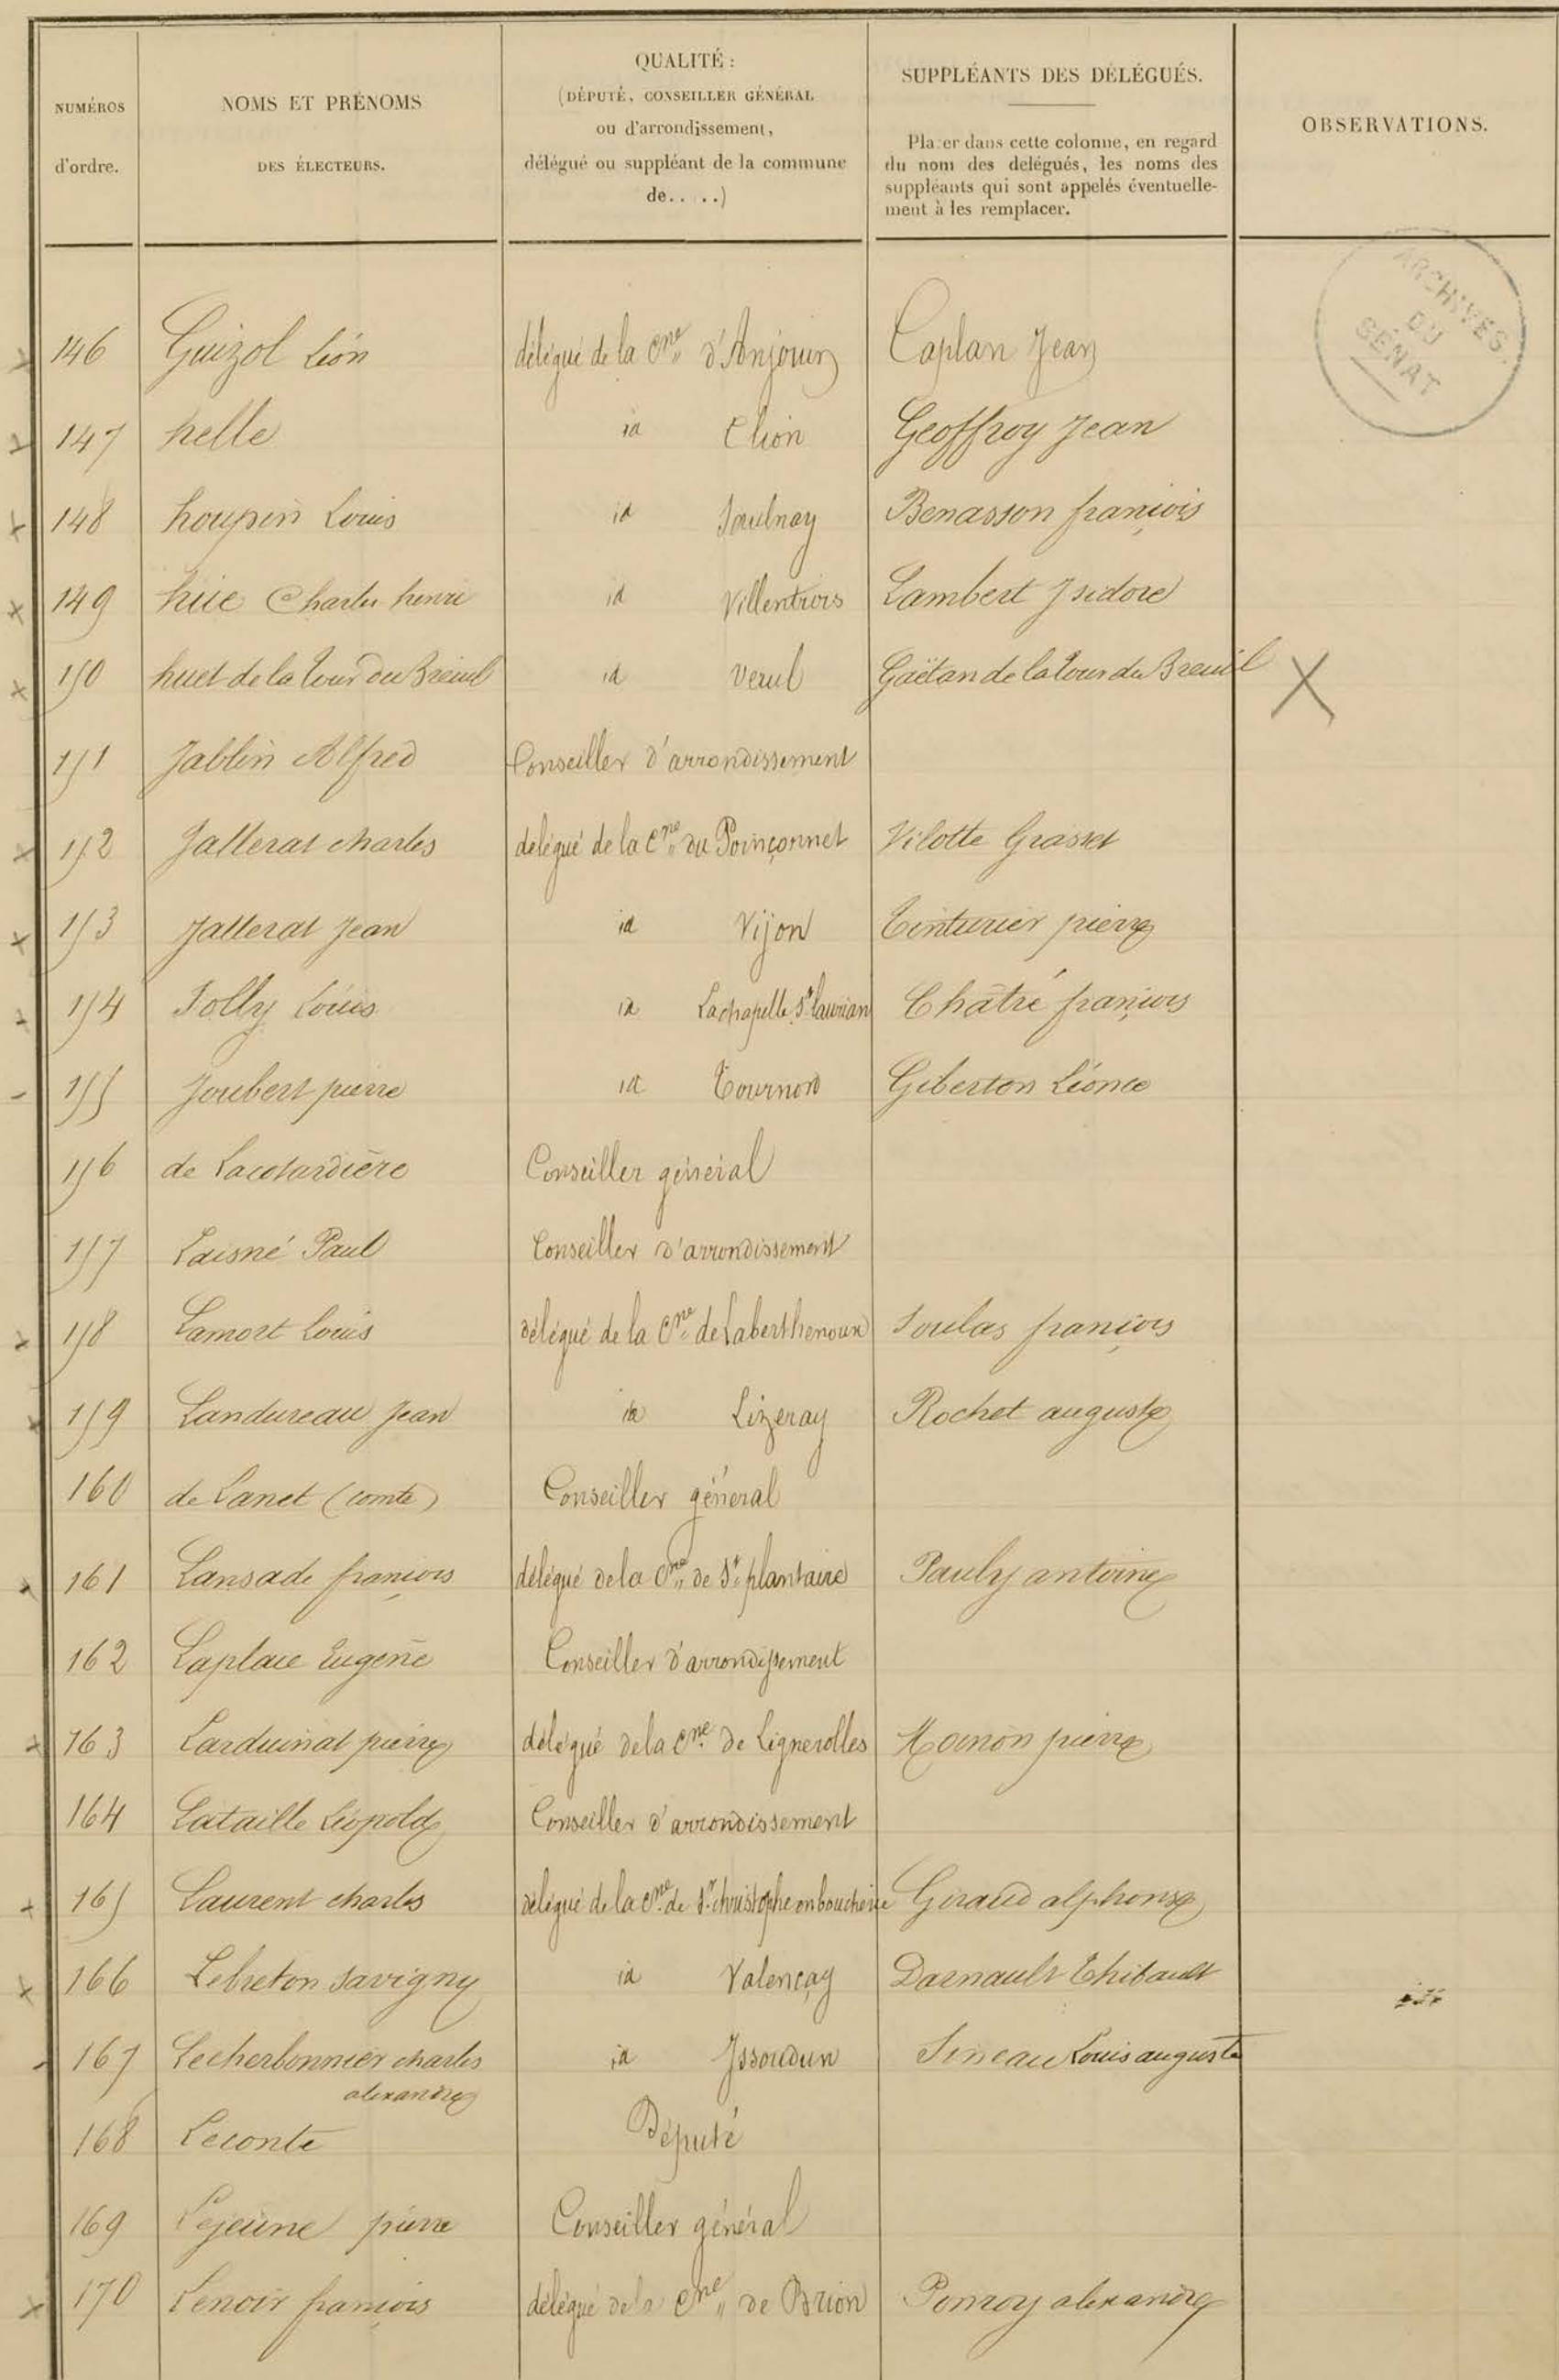 NUMÉROS
d'ordre.
NOMS ET PRÉNOMS
DES ÉLECTEURS.
QUALITÉ :
(DÉPUTÉ, CONSEILLER GÉNÉRAL
ou d'arrondissement,
délégué ou suppléant de la commune
de.....)
SUPPLÉANTS DES DÉLÉGUÉS.
Placer dans cette colonne, en regard
du nom des delégués, les noms des
suppléants qui sont appelés éventuelle-
ment à les remplacer.
OBSERVATIONS.
ARCHIVES
DU
SÉNAT
x 146 Guizol Léon délégué de la Cne d'Anjouin Caplan Jean
x 147 helle id Clion Geoffroy Jean
x 148 houpin Louis id Saulnay Benasson françois
x 149 hüe Charles henri id Villentrois Lambert Isidore
x 150 huet de la tour du Breuil id Veuil Gaëtan de la tour du Breuil X
151 Jablin Alfred Conseiller d'arrondissement
x 152 Jallerat charles delégué de la Cne du Poinçonnet Vilotte Grasset
x 153 Jallerat Jean id Vijon Tinturier pierre
x 154 Jolly Louis id Lachapelle St laurian Châtré françois
- 155 Joubert pierre id Tournon Giberton Léonce
156 de Lacotardière Conseiller général
157 Laisné Paul Conseiller d'arrondissement
x 158 Lamort Louis délégué de la Cne de Laberthenoux Soulas françois
x 159 Landureau Jean id Lizeray Rochet auguste
160 de Lanet (comte) Conseiller général
x 161 Lansade françois délégué de la Cne de St plantaire Pauly antoine
162 Laplace Eugène Conseiller d'arrondissement
x 163 Larduinat pierre délégué de la Cne de Lignerolles Moinon pierre
164 Lataille Léopold Conseiller d'arrondissement
x 165 Laurent charles délégué de la Cne de St christophe en boucherie Giraud alphonse
x 166 Lebreton Savigny id Valençay Darnault Thibault
- 167 Lecherbonnier charles id Issoudun Sineau Louis auguste
alexandre
168 Leconte Député
169 Lejeune pierre Conseiller général
x 170 Lenoir françois délégué de la Cne de Brion Pomroy alexandre